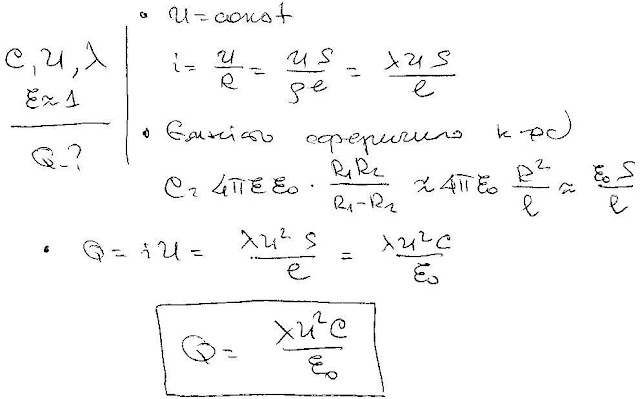 C, U, λ
ε≈1
Q-?
• U=const
i= U/R = US/ρℓ = λUS/ℓ
• Ємність сферичного к-ра
C= 4πεε₀ · R₁R₂/(R₁-R₂) ≈ 4πε₀ R²/ℓ ≈ ε₀S/ℓ
• Q= iU = λU²S/ℓ = λU²C/ε₀
Q= λU²C/ε₀